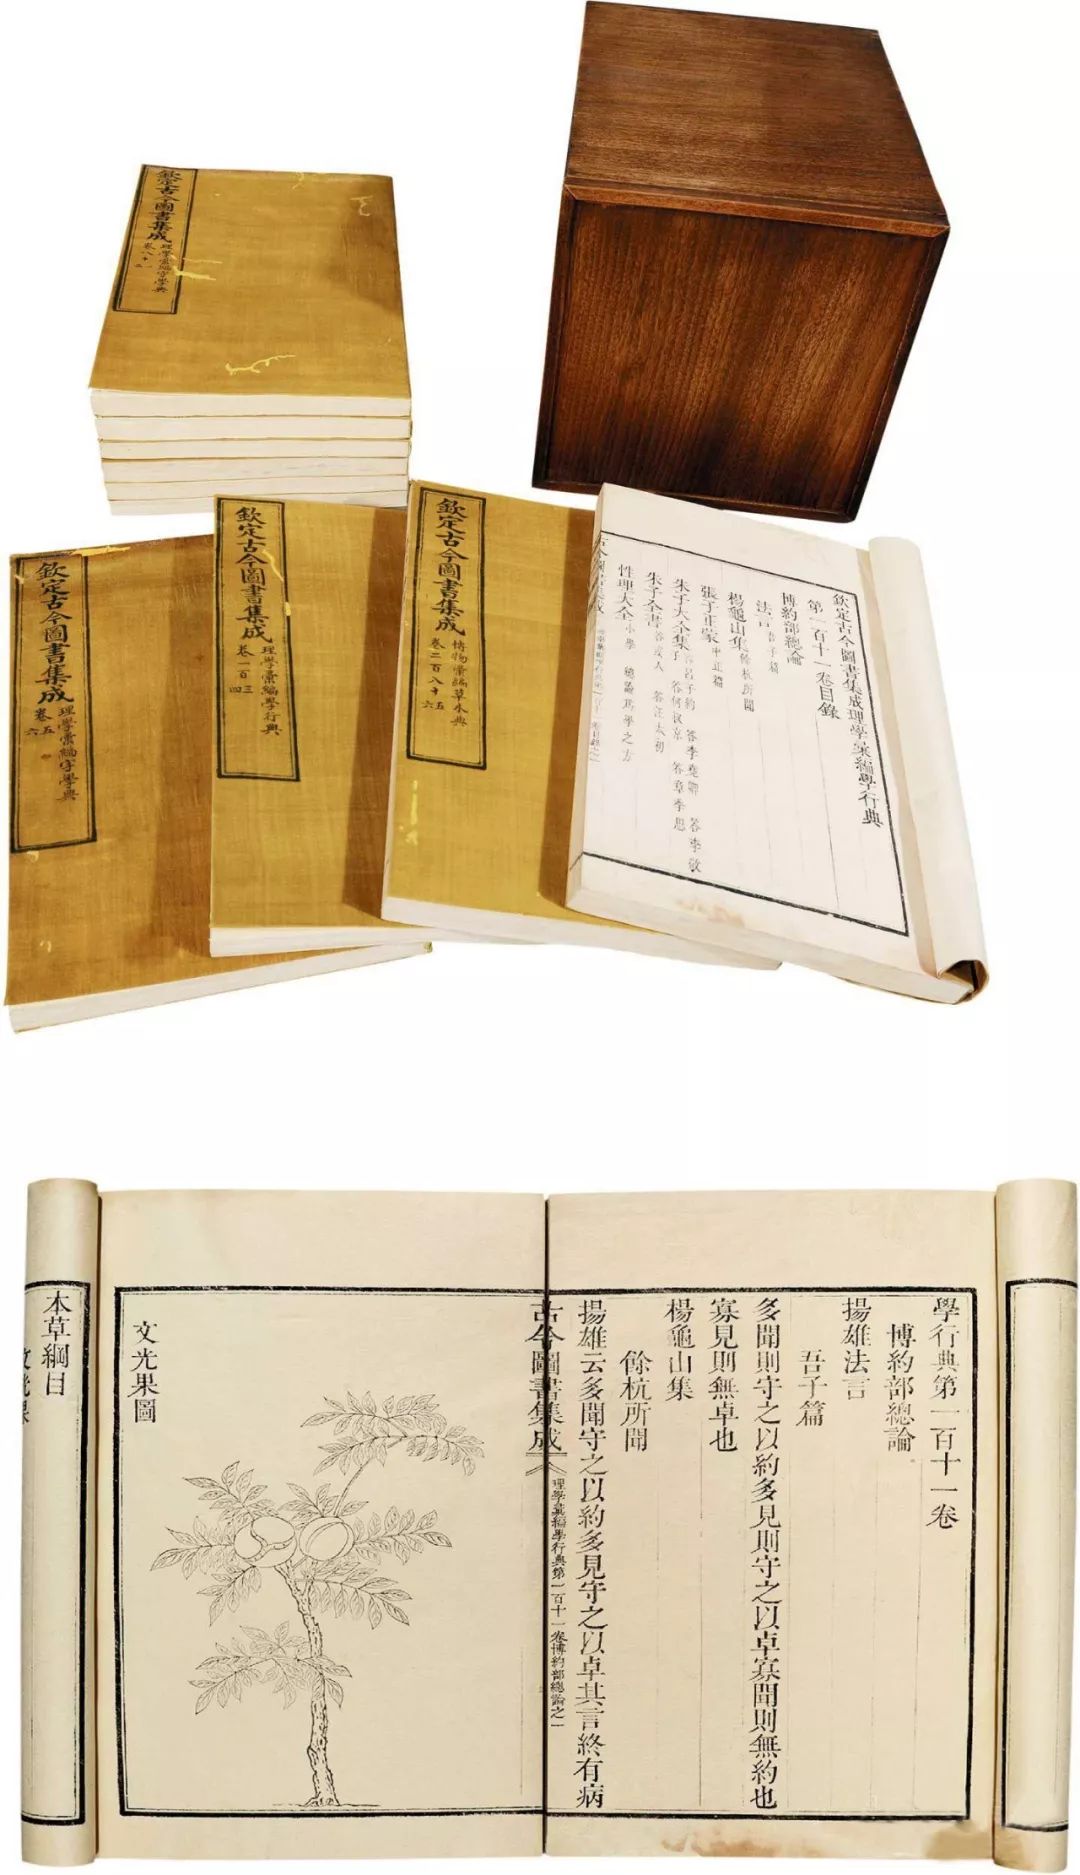 欽定古今圖書集成
理學彙編字學典
卷八十一
欽定古今圖書集成
理學彙編字學典
卷五
六
欽定古今圖書集成
理學彙編學行典
卷一百三
四
欽定古今圖書集成
博物彙編草木典
卷二百八十五
六
欽定古今圖書集成理學彙編學行典
第一百十一卷目錄
博約部總論
法言 吾子篇
楊龜山集 餘杭所聞
張子正蒙 中正篇
朱子大全集 答呂子約 答李堯卿 答李敬子 答何叔京 答章季思
朱子全書 答或人 答汪太初
性理大全 小學 總論為學之方
古今圖書集成
學行典第一百十一卷
博約部總論
揚雄法言
吾子篇
多聞則守之以約多見則守之以卓寡聞則無約也
寡見則無卓也
楊龜山集
餘杭所聞
揚雄云多聞守之以約多見守之以卓其言終有病
古今圖書集成
理學彙編學行典第一百十一卷博約部總論之一
文光果圖
本草綱目